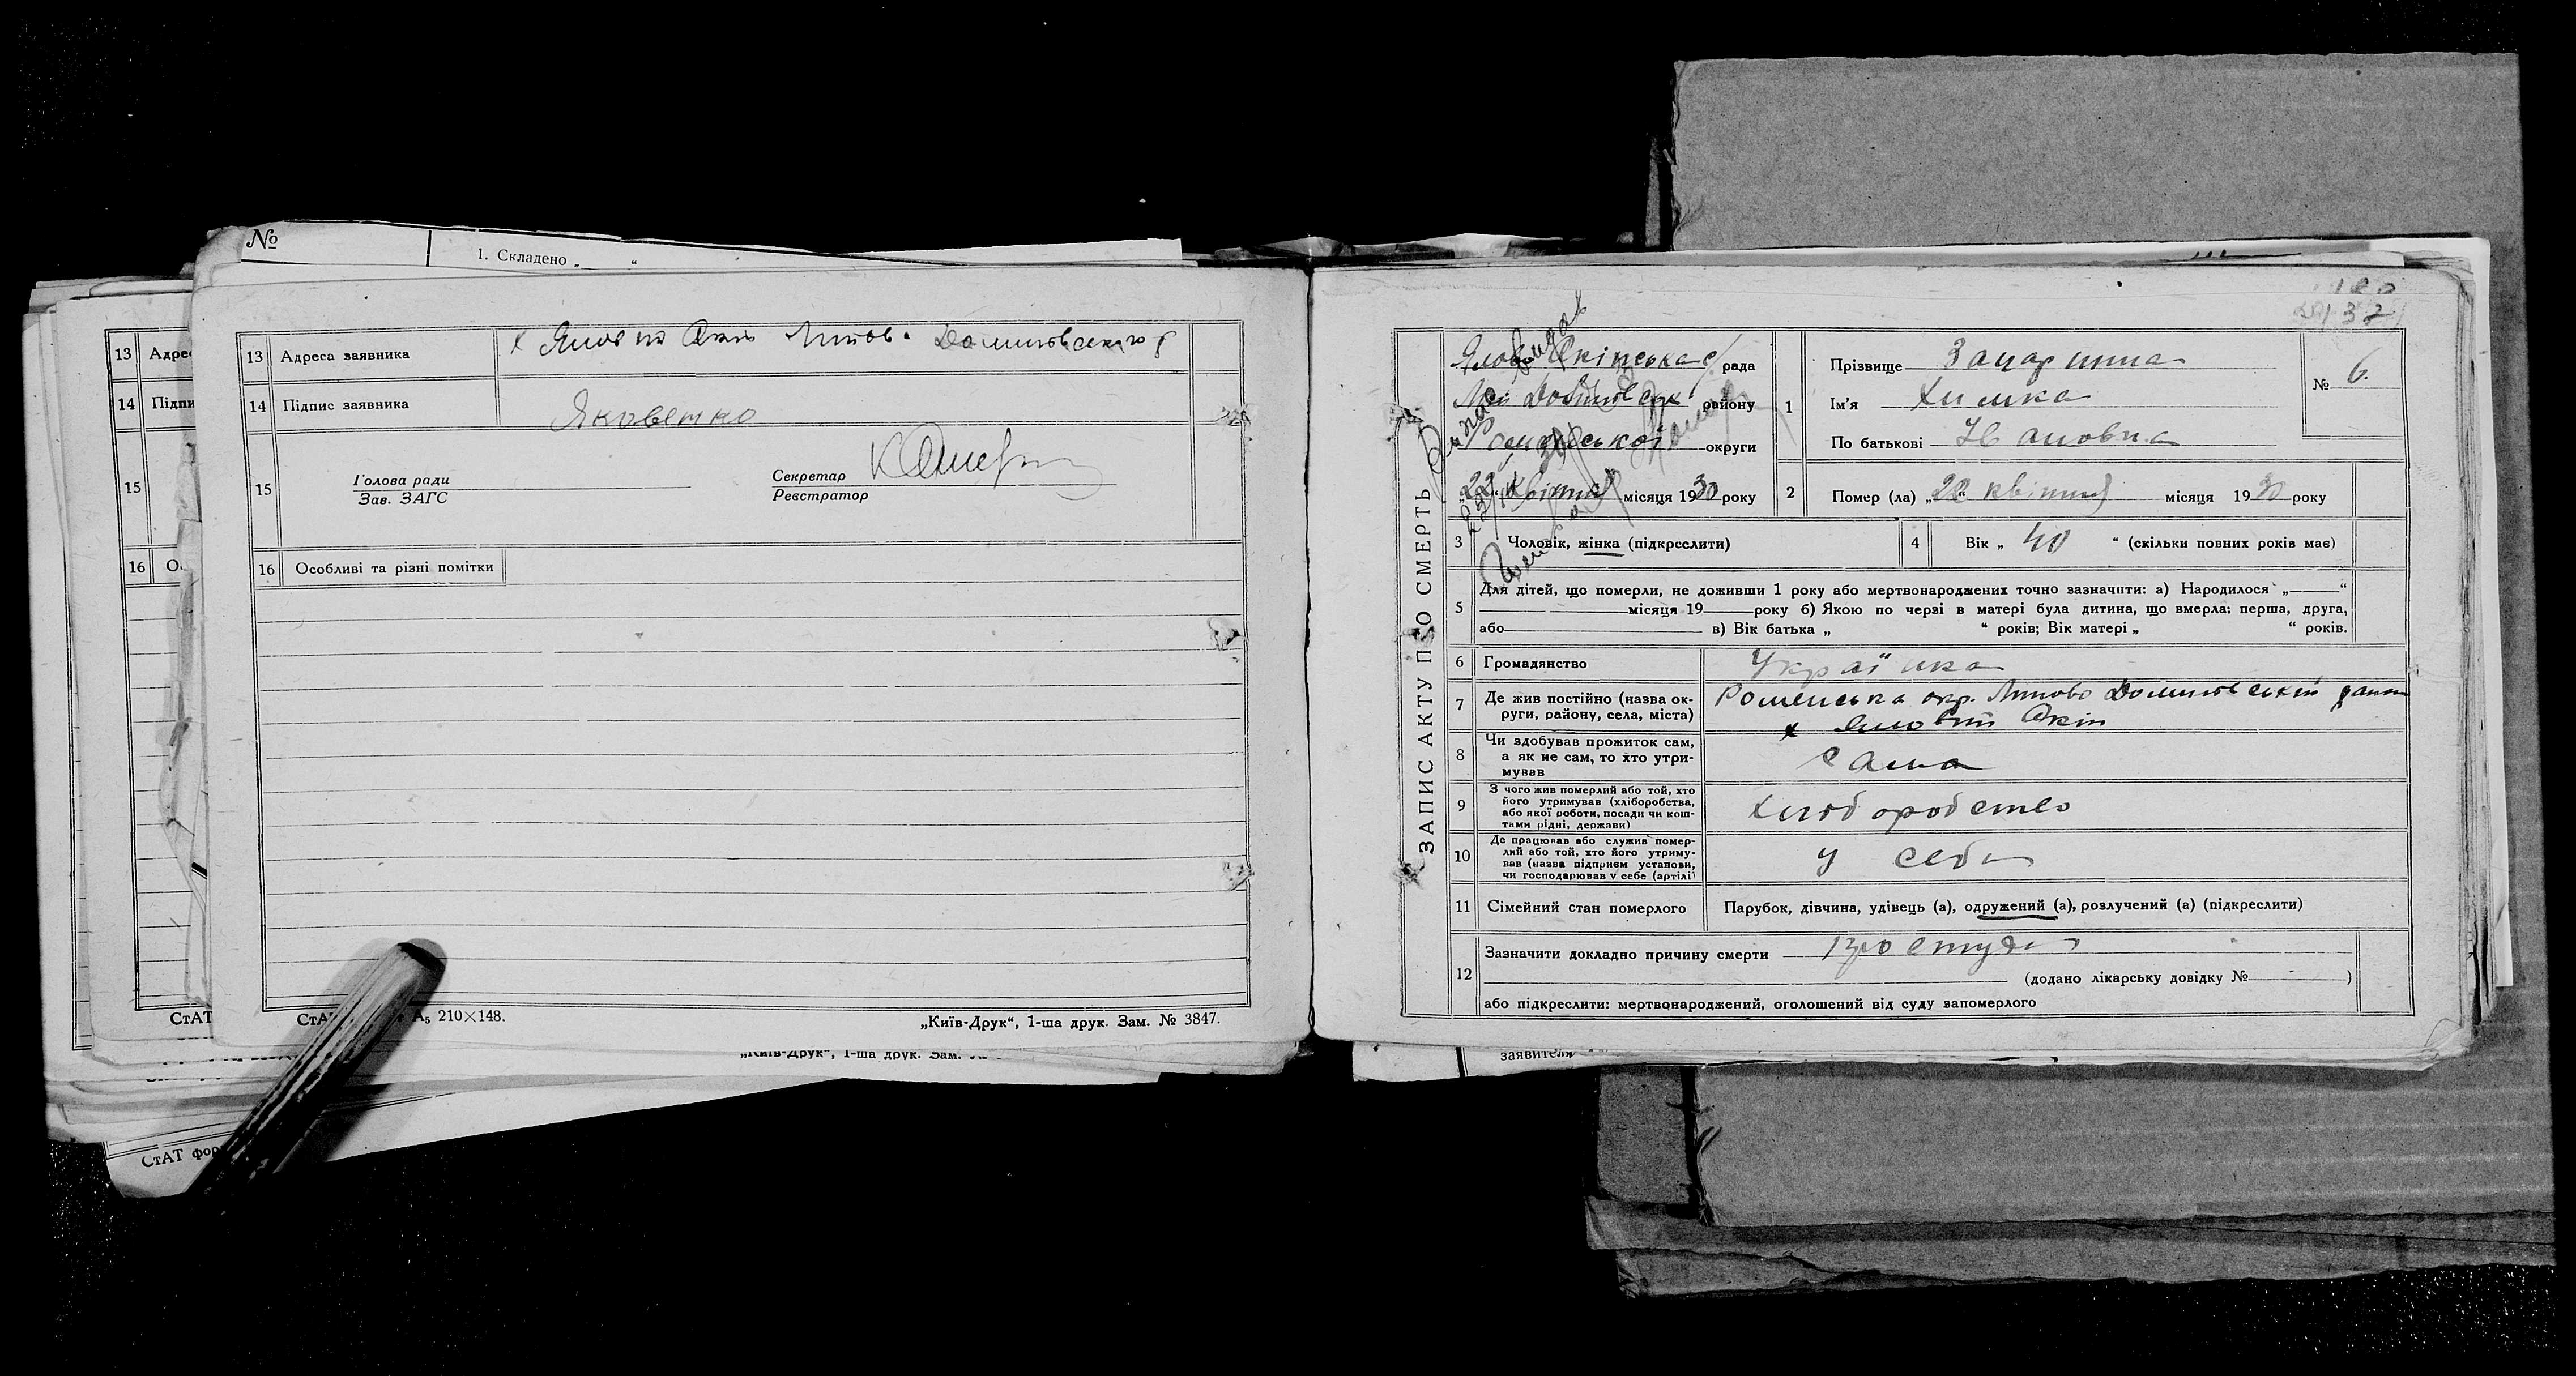 №
1. Складено „ “
13 Адре
14 Підпи
15
16 О
СтАТ
13 Адреса заявника
х Ялов по Окіп Липов. Долинського р
14 Підпис заявника
Яковенко
15 Голова ради
Зав. ЗАГС
Секретар
Реєстратор
16 Особливі та різні помітки
СтА А₅ 210×148.
„Київ-Друк“, 1-ша друк. Зам. № 3847.
„Київ-Друк“, 1-ша друк. Зам.
СтАТ фор
137
ЗАПИС АКТУ ПРО СМЕРТЬ
рада
району
Роменської округи
„22“ квітня місяця 1930 року
1 Прізвище
Ім'я Химка
По батькові Івановна
№ 6.
2 Помер (ла) „ квітня місяця 1930 року
3 Чоловік, жінка (підкреслити)
4 Вік „ 40 “ (скільки повних років має)
5 Для дітей, що померли, не доживши 1 року або мертвонароджених точно зазначити: а) Народилося „ “
місяця 19 року б) Якою по черзі в матері була дитина, що вмерла: перша, друга,
або в) Вік батька „ “ років; Вік матері „ “ років.
6 Громадянство Українка
7 Де жив постійно (назва ок-
руги, району, села, міста)
Роменська окр. Липово Долинський район
х Яловий Окіп
8 Чи здобував прожиток сам,
а як не сам, то хто утри-
мував
сама
9 З чого жив померлий або той, хто
його утримував (хліборобства,
або якої роботи, посади чи кош-
тами рідні, держави)
Хліборобство
10 Де працював або служив помер-
лий або той, хто його утриму-
вав (назва підприєм установи,
чи господарював у себе (артілі)
У себе
11 Сімейний стан померлого
Парубок, дівчина, удівець (а), одружений (а), розлучений (а) (підкреслити)
12 Зазначити докладно причину смерти простуда
(додано лікарську довідку № )
або підкреслити: мертвонароджений, оголошений від суду запомерлого
заявителя